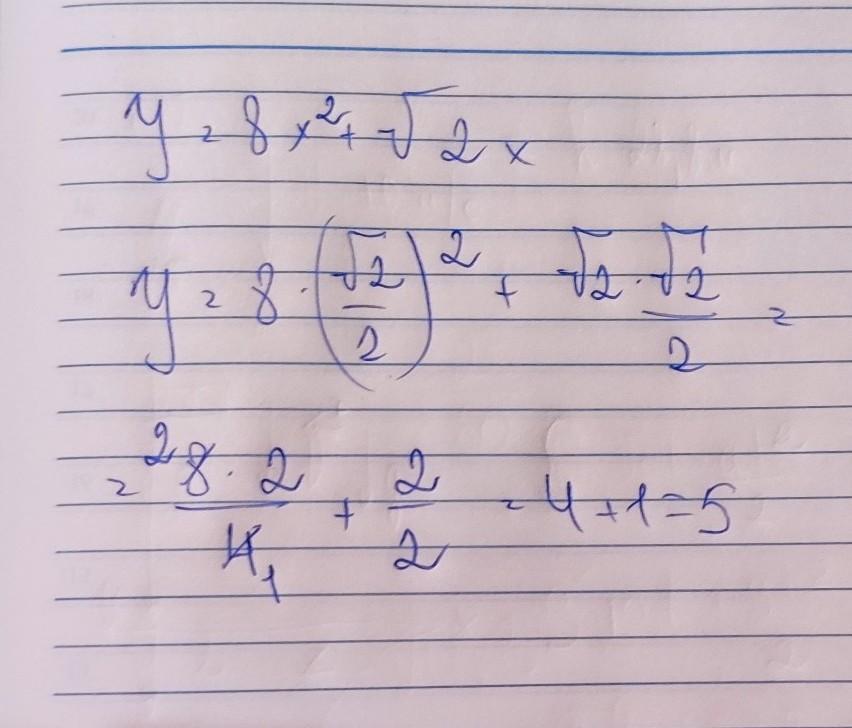 y = 8x² + √2 x
y = 8 · (√2/2)² + √2 · √2/2 =
= ²8 · 2/4₁ + 2/2 = 4 + 1 = 5